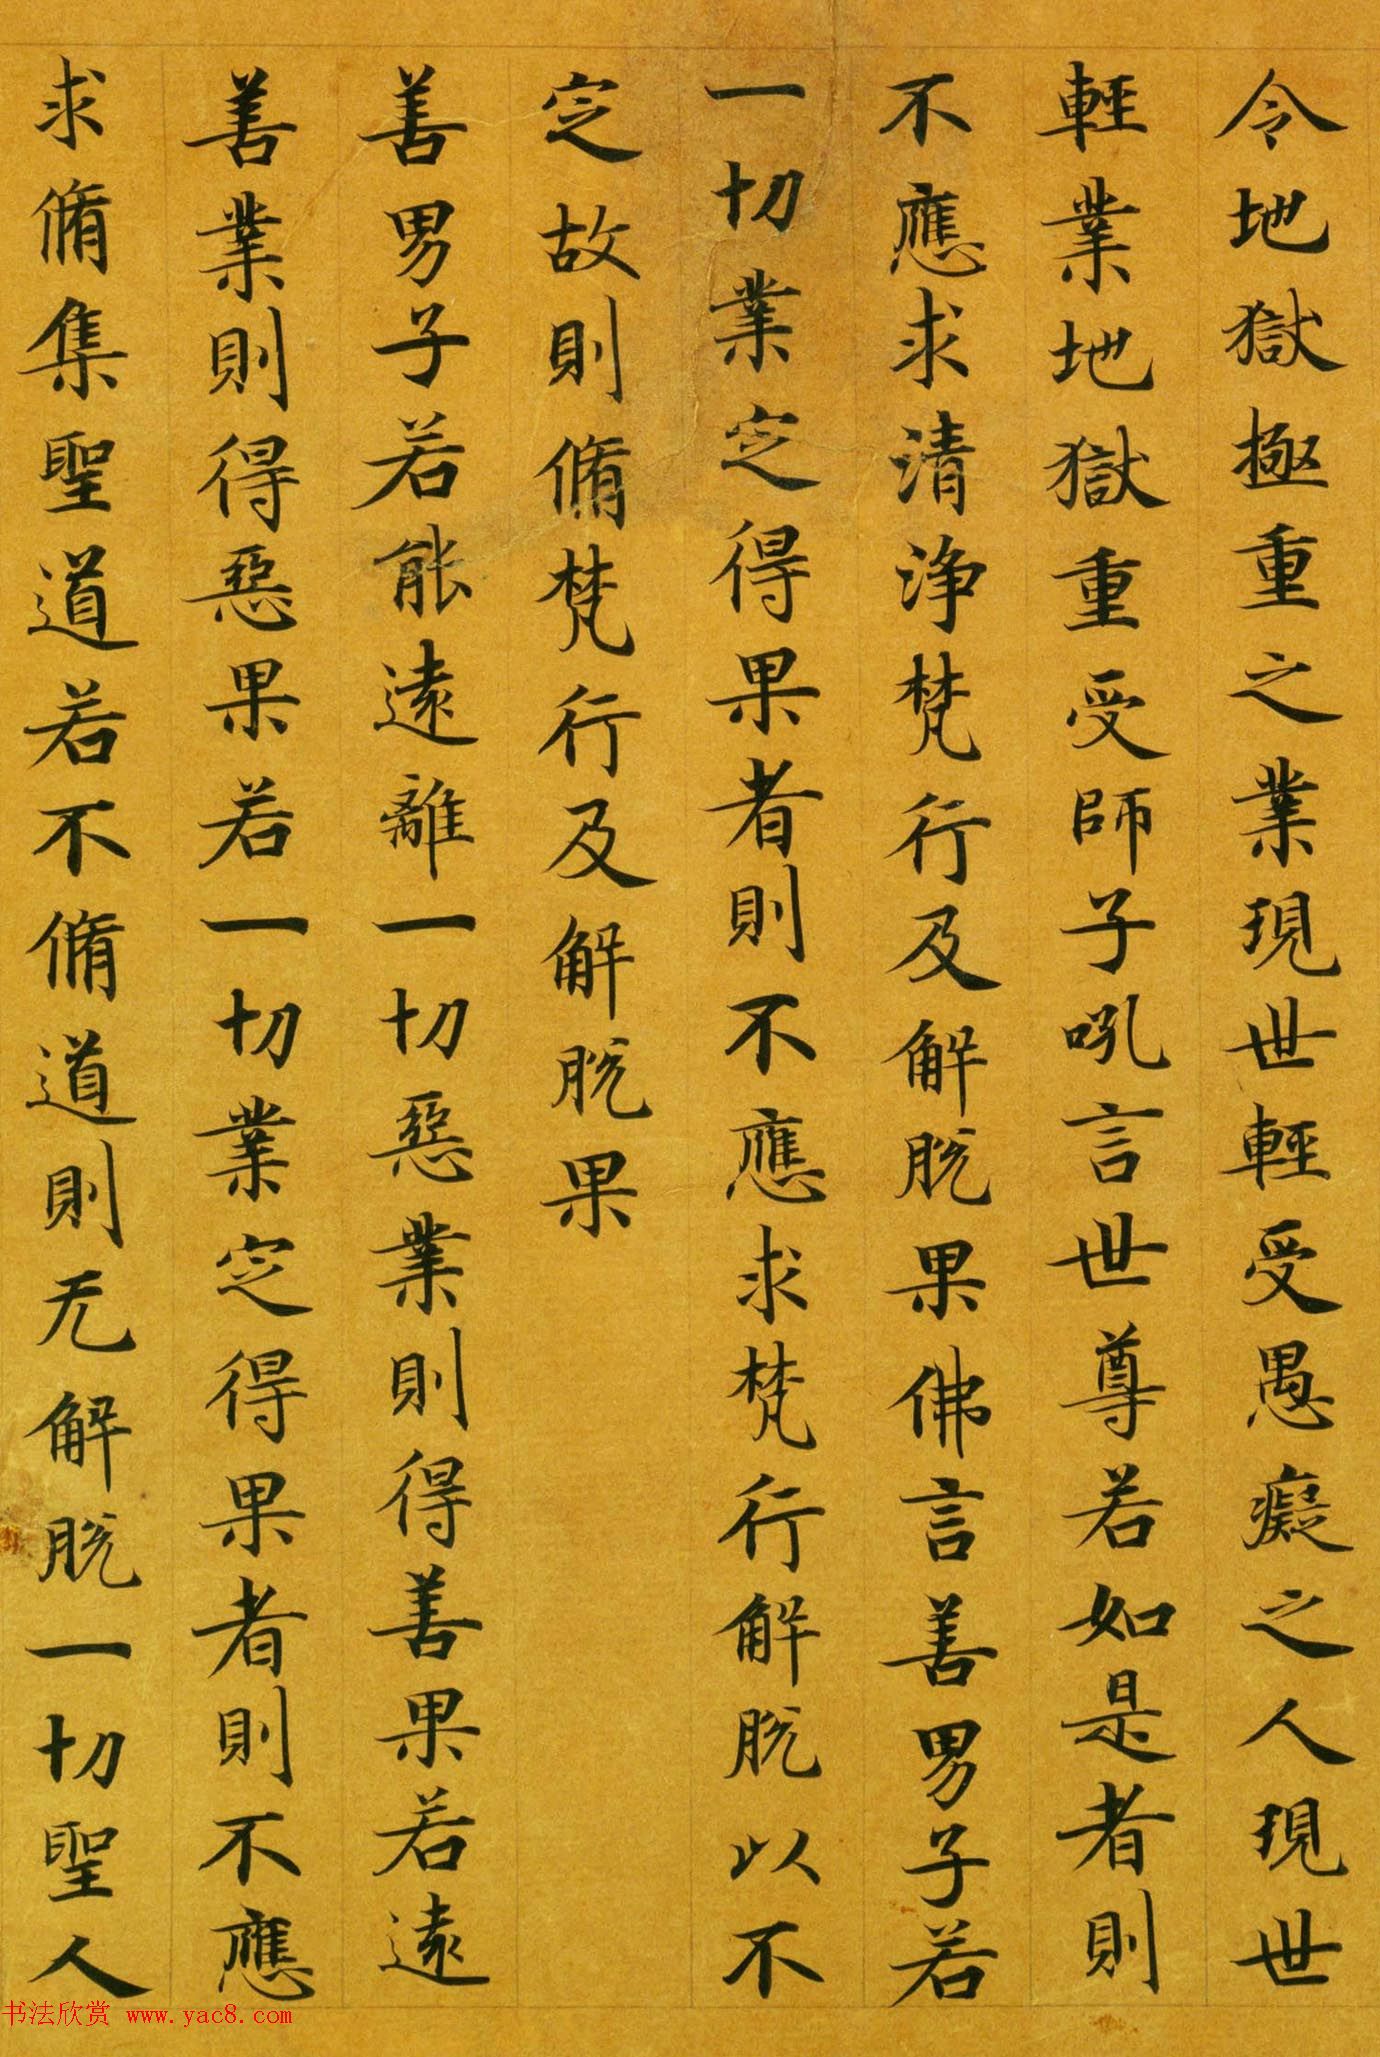 令地獄極重之業現世輕受愚癡之人現世
輕業地獄重受師子吼言世尊若如是者則
不應求清淨梵行及解脫果佛言善男子若
一切業定得果者則不應求梵行解脫以不
定故則脩梵行及解脫果
善男子若能遠離一切惡業則得善果若遠
善業則得惡果若一切業定得果者則不應
求脩集聖道若不脩道則无解脫一切聖人
书法欣赏 www.yac8.com